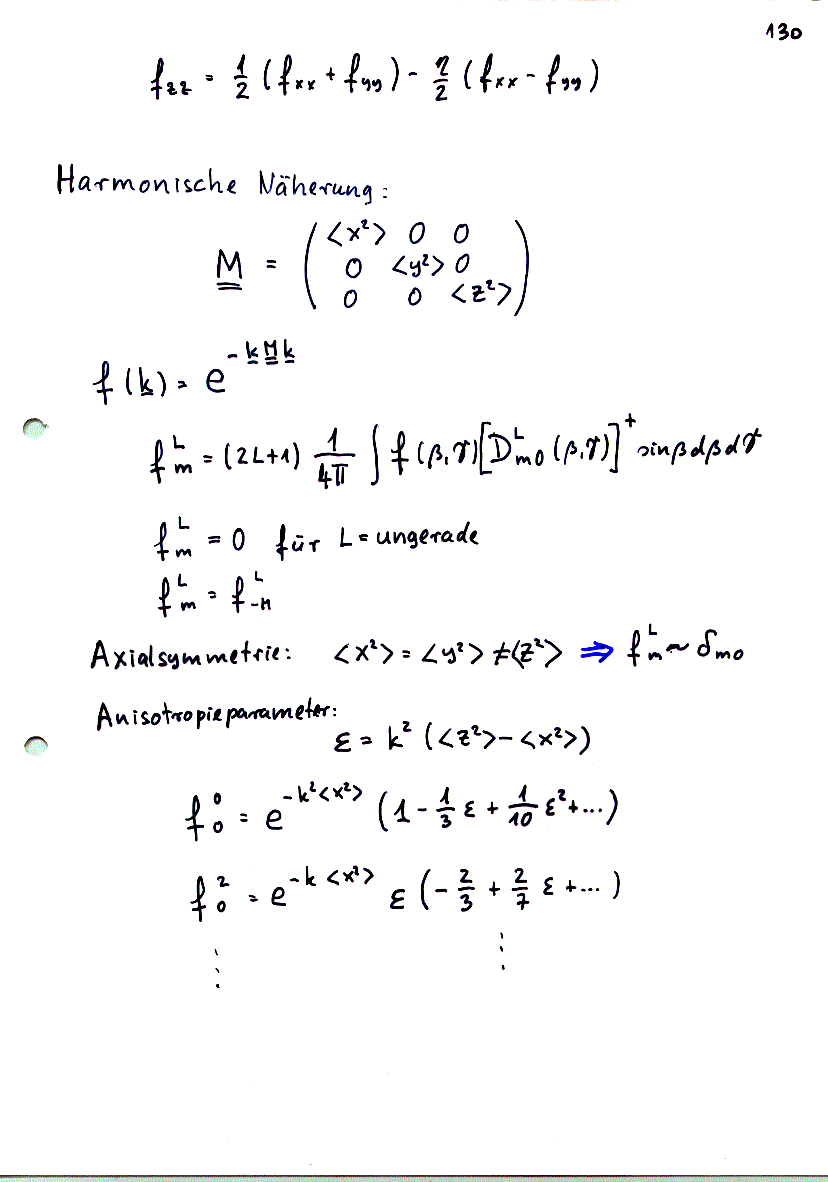 130
f_zz = 1/2 (f_xx + f_yy) - η/2 (f_xx - f_yy)
Harmonische Näherung:
M = ( <x²> 0 0
0 <y²> 0
0 0 <z²> )
f(k) = e^(-k M k)
f_m^L = (2L+1) 1/4π ∫ f(β,γ) [D_m0^L (β,γ)]^+ sinβ dβ dγ
f_m^L = 0 für L = ungerade
f_m^L = f_-M^L
Axialsymmetrie: <x²> = <y²> ≠ <z²> ⇒ f_m^L ~ δ_m0
Anisotropieparameter:
ε = k² (<z²> - <x²>)
f_0^0 = e^(-k²<x²>) (1 - 1/3 ε + 1/10 ε² + ...)
f_0^2 = e^(-k <x²>) ε (- 2/3 + 2/7 ε + ... )
⋮ ⋮